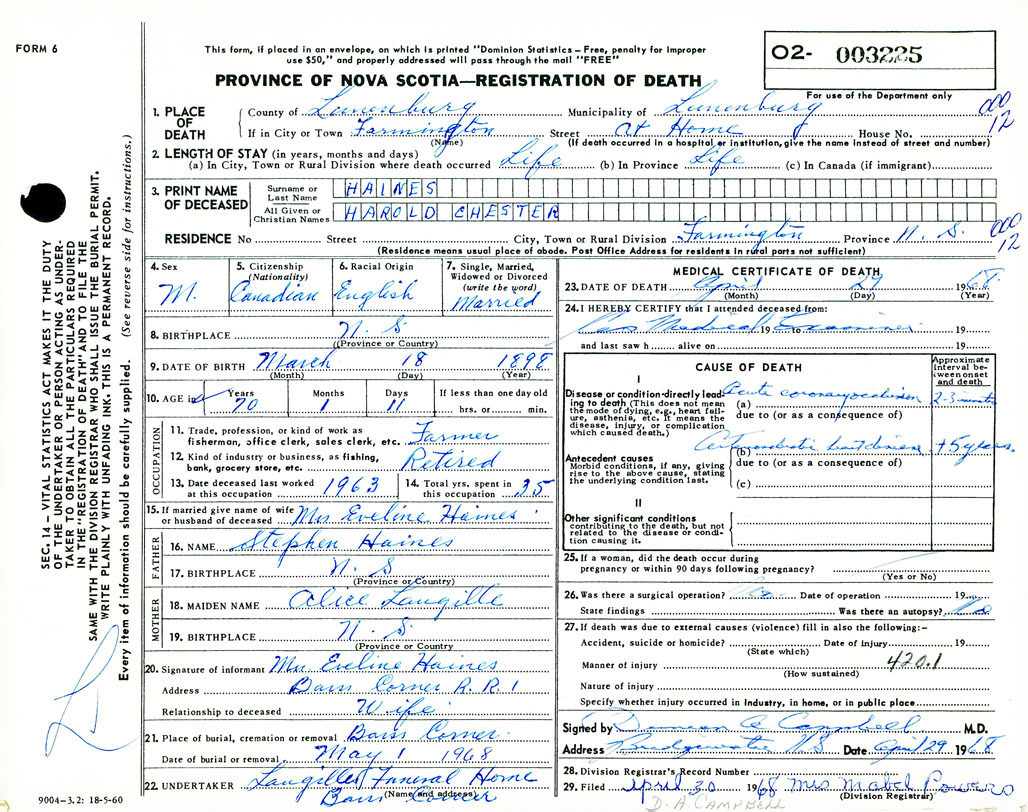 FORM 6
This form, if placed in an envelope, on which is printed "Dominion Statistics – Free, penalty for improper
use $50," and properly addressed will pass through the mail "FREE"
PROVINCE OF NOVA SCOTIA—REGISTRATION OF DEATH
02- 003225
For use of the Department only
1. PLACE OF DEATH
County of Lunenburg Municipality of Lunenburg 000
If in City or Town Farmington Street At Home House No. 12
(Name) (If death occurred in a hospital or institution, give the name instead of street and number)
2. LENGTH OF STAY (in years, months and days)
(a) In City, Town or Rural Division where death occurred Life (b) In Province Life (c) In Canada (if immigrant)
3. PRINT NAME OF DECEASED
Surname or Last Name HAINES
All Given or Christian Names HAROLD CHESTER
RESIDENCE No Street City, Town or Rural Division Farmington Province N. S. 000 12
(Residence means usual place of abode. Post Office Address for residents in rural parts not sufficient)
4. Sex M.
5. Citizenship (Nationality) Canadian
6. Racial Origin English
7. Single, Married, Widowed or Divorced (write the word) Married
8. BIRTHPLACE N. S
(Province or Country)
9. DATE OF BIRTH March 18 1898
(Month) (Day) (Year)
10. AGE in Years 70 Months 1 Days 11 If less than one day old hrs. or min.
OCCUPATION
11. Trade, profession, or kind of work as fisherman, office clerk, sales clerk, etc. Farmer
12. Kind of industry or business, as fishing, bank, grocery store, etc. Retired
13. Date deceased last worked at this occupation 1963
14. Total yrs. spent in this occupation 35
15. If married give name of wife or husband of deceased Mrs Eveline Haines
FATHER
16. NAME Stephen Haines
17. BIRTHPLACE N. S
(Province or Country)
MOTHER
18. MAIDEN NAME Alice Langille
19. BIRTHPLACE N. S
(Province or Country)
20. Signature of informant Mrs Eveline Haines
Address Barss Corner R. R. 1
Relationship to deceased Wife
21. Place of burial, cremation or removal Barss Corner
Date of burial or removal May 1 1968
22. UNDERTAKER Langilles Funeral Home
(Name and address)
Barss Corner
MEDICAL CERTIFICATE OF DEATH
23. DATE OF DEATH April 29 1968
(Month) (Day) (Year)
24. I HEREBY CERTIFY that I attended deceased from:
as Medical 19 to Examiner 19
and last saw h alive on 19
CAUSE OF DEATH
Approximate interval between onset and death
I
Disease or condition directly leading to death (This does not mean the mode of dying, e.g., heart failure, asthenia, etc. It means the disease, injury, or complication which caused death.)
(a) Acute coronary occlusion 2-3 minutes
due to (or as a consequence of)
Antecedent causes
Morbid conditions, if any, giving rise to the above cause, stating the underlying condition last.
(b) heart disease +5 years.
due to (or as a consequence of)
(c)
II
Other significant conditions
contributing to the death, but not related to the disease or condition causing it.
25. If a woman, did the death occur during
pregnancy or within 90 days following pregnancy?
(Yes or No)
26. Was there a surgical operation? No Date of operation 19
State findings Was there an autopsy? No
27. If death was due to external causes (violence) fill in also the following:-
Accident, suicide or homicide? Date of injury 19
(State which)
Manner of injury 420.1
(How sustained)
Nature of injury
Specify whether injury occurred in Industry, in home, or in public place
Signed by Campbell M.D.
Address Bridgewater N.S Date April 29 1968
28. Division Registrar's Record Number
29. Filed April 30 1968 Mrs Mabel Powers
(Division Registrar)
D. A. CAMPBELL
SEC. 14 – VITAL STATISTICS ACT MAKES IT THE DUTY
OF THE UNDERTAKER OR PERSON ACTING AS UNDER-
TAKER TO OBTAIN ALL THE PARTICULARS REQUIRED
IN THE "REGISTRATION OF DEATH" AND TO FILE THE
SAME WITH THE DIVISION REGISTRAR WHO SHALL ISSUE THE BURIAL PERMIT.
WRITE PLAINLY WITH UNFADING INK. THIS IS A PERMANENT RECORD.
Every item of information should be carefully supplied. (See reverse side for instructions.)
9004–3.2: 18-5-60